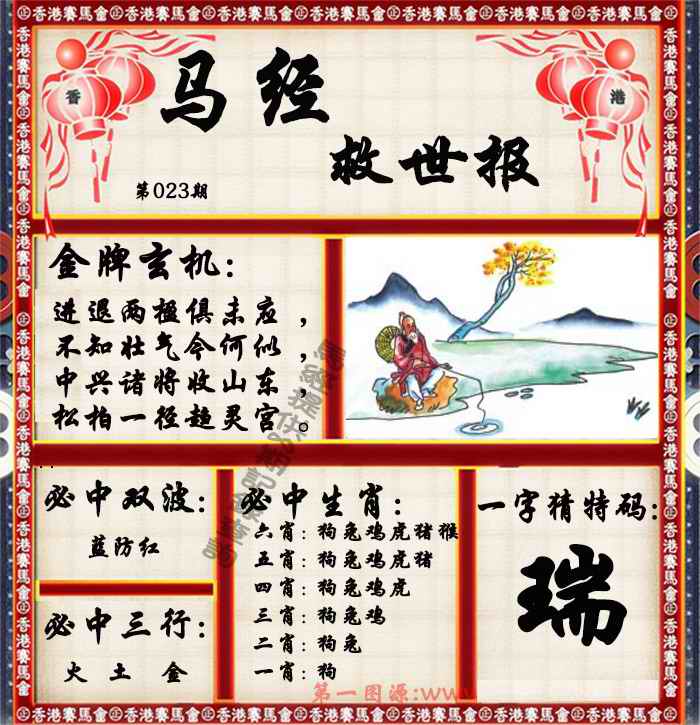 香港賽馬會
香
港
马经
救世报
第023期
金牌玄机：
进退两楹俱未应，
不知壮气今何似，
中兴诸将收山东，
松柏一径趋灵宫。
必中双波：
蓝防红
必中三行：
火 土 金
必中生肖：
六肖：狗兔鸡虎猪猴
五肖：狗兔鸡虎猪
四肖：狗兔鸡虎
三肖：狗兔鸡
二肖：狗兔
一肖：狗
一字猜特码：
瑞
第一图源:www